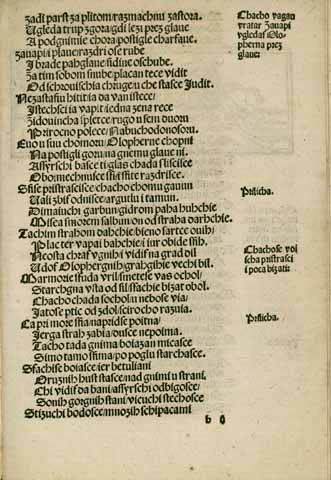 zadi parst za plitom / razmachnu zastora.
Ugleda trup zgora / gdi lezi prez glaue
A podgnimie chora / postiglie charfaue.
zauapi i plaue / razdri ose rube
I brade pahglaue / sidine oschube.
Za tim sobom snube / placan tece vidit
Od schrouischia chruge / u che stasce Judit.
Nezastasfu hitit i ta van istece /
Istechsci ia vapit i edna zena rece
zidouincha spletce rugo u sem duoru
Prirocno polece / Nabuchodonosoru.
Euo u suu chomoru / Olopherne chopni
Na postigli goru na gniemu glaue ni.
Assyrschi basce ti glas chada slisscisce
Obo im ech misce sfi sfite razdrisce.
Stise pristrascisce chacho chomu gauun
Uali zbisodnisce / argutlu i tamun.
Dimaiuchi garbun gidrom paha buhchie
Miscea i morem salbun on od straha darhchie.
Tachim strahom dahchie / bieno sartce ouih /
Plac ter vapai bahchie / i iur obide sfih.
Neosta chraf vgnih i vidisna grad bil
U dof Olopherguih / grahgihie vechi bil.
Marmorie sfuda vril / smetese vas ochol /
Starchgna vsta od sil / sfachie bizat obol.
Chacho chada sochol / u nebose via /
Jatose ptic od zdol / sciroccho razuia.
Ca pri more sfia / napridse poitna /
Jerga strah zabia / dusce nepoima.
Tacho tada gnima boiazan micasce
Simo tamo sfima / po poglu starchasce.
Sfachise boiasce ier betuliani
Oruznih hust stasce / nad gnimi u strani.
Chi vidif da bani / assyrsci odbigosce /
Sonih gorgnih stani / vicuchi stechosce
Stizuchi bodosce / mnozih schipacami
b
Chacho vagau
vratar Zauapi
vgledaf Olo-
pherna prez
glaue:
Prilicha.
Chachose voi
scha pristrasci
i poca bizati:
Prilicha.